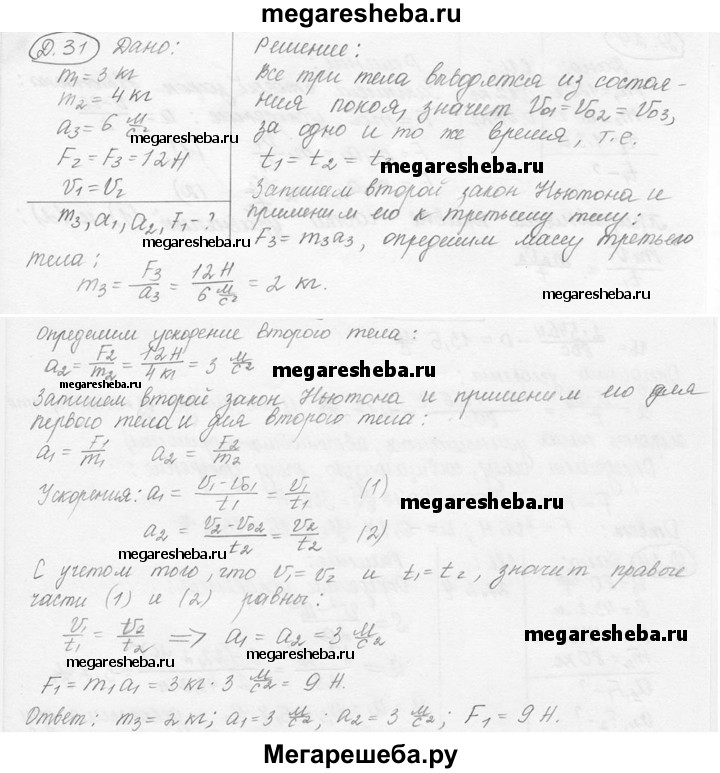 megaresheba.ru
Д.31 Дано: Решение:
m₁ = 3 кг
m₂ = 4 кг
a₃ = 6 м/с²
F₂ = F₃ = 12 Н
v₁ = v₂
m₃, a₁, a₂, F₁ - ?
megaresheba.ru
megaresheba.ru
Все три тела выводятся из состоя-
ния покоя, значит v₀₁ = v₀₂ = v₀₃,
за одно и то же время, т.е.
t₁ = t₂ = t₃
megaresheba.ru
Запишем второй закон Ньютона и
применим его к третьему телу:
F₃ = m₃a₃, определим массу третьего
тела:
m₃ = F₃/a₃ = 12 Н / 6 м/с² = 2 кг.
megaresheba.ru
Определим ускорение второго тела:
a₂ = F₂/m₂ = 12 Н / 4 кг = 3 м/с²
megaresheba.ru
megaresheba.ru
Запишем второй закон Ньютона и применим его для
первого тела и для второго тела:
a₁ = F₁/m₁ a₂ = F₂/m₂
Ускорения: a₁ = (v₁ - v₀₁)/t₁ = v₁/t₁ (1)
megaresheba.ru
a₂ = (v₂ - v₀₂)/t₂ = v₂/t₂ (2)
megaresheba.ru
С учетом того, что v₁ = v₂ и t₁ = t₂, значит правые
части (1) и (2) равны:
v₁/t₁ = v₂/t₂ => a₁ = a₂ = 3 м/с²
megaresheba.ru
megaresheba.ru
megaresheba.ru
F₁ = m₁a₁ = 3 кг · 3 м/с² = 9 Н.
Ответ: m₃ = 2 кг; a₁ = 3 м/с²; a₂ = 3 м/с²; F₁ = 9 Н.
Мегарешеба.ру